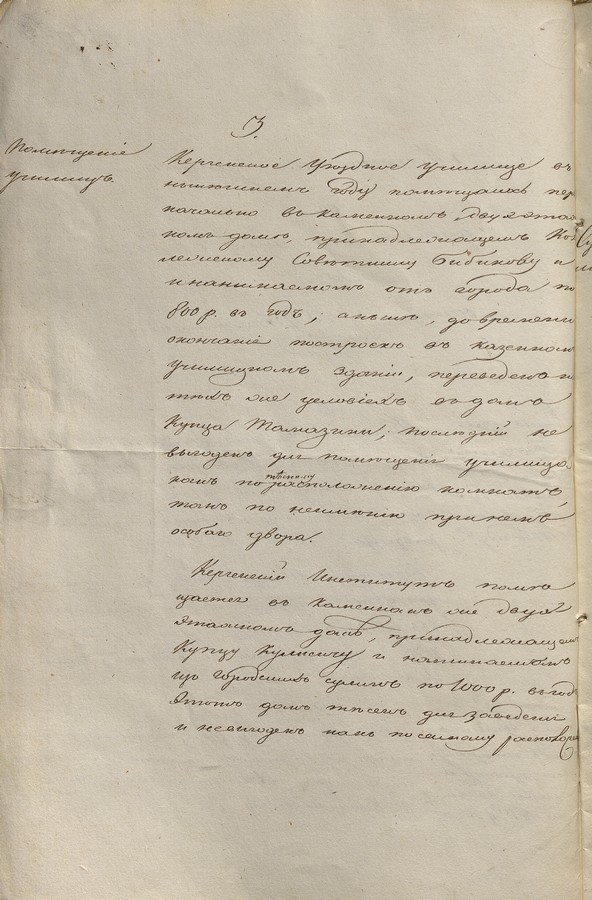 3.
Помѣщеніе
училищъ.
Керченское Уѣздное училище въ
нынѣшнемъ году помѣщалось пер
начально въ каменномъ двухэта
номъ домѣ, принадлежащемъ Ко
лежскому Совѣтнику Бибикову и
и нанимаемомъ отъ города по
800 р. въ годъ; а нынѣ, до времени
окончанія построекъ въ казенномъ
училищномъ зданіи, переведено на
тѣхъ же условіяхъ въ домъ
Купца Тамазини; послѣдній не
выгоденъ для помѣщенія училища
какъ по тѣсному расположенію комнатъ,
такъ по неимѣнію при немъ
особаго двора.
Керченскій Институтъ помѣ
щается въ каменномъ же двух
этажномъ домѣ, принадлежащемъ
Купцу и нанимаемомъ
городскихъ суммъ по 1000 р. въ годъ
Этотъ домъ тѣсенъ для заведенія
и невыгоденъ какъ по самому располож